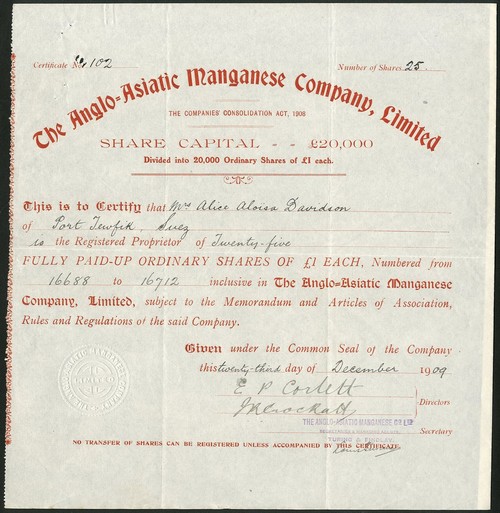 Certificate No. 102
Number of Shares 25
The Anglo-Asiatic Manganese Company, Limited
THE COMPANIES' CONSOLIDATION ACT, 1908
SHARE CAPITAL - - £20,000
Divided into 20,000 Ordinary Shares of £1 each.
This is to Certify that Mrs Alice Aloisa Davidson
of Port Tewfik, Suez
is the Registered Proprietor of Twenty-five
FULLY PAID-UP ORDINARY SHARES OF £1 EACH, Numbered from
16688 to 16712 inclusive in The Anglo-Asiatic Manganese
Company, Limited, subject to the Memorandum and Articles of Association,
Rules and Regulations of the said Company.
Given under the Common Seal of the Company
this twenty-third day of December 1909
E P Corlett
Directors
THE ANGLO-ASIATIC MANGANESE CO LTD
Secretary
NO TRANSFER OF SHARES CAN BE REGISTERED UNLESS ACCOMPANIED BY THIS CERTIFICATE.